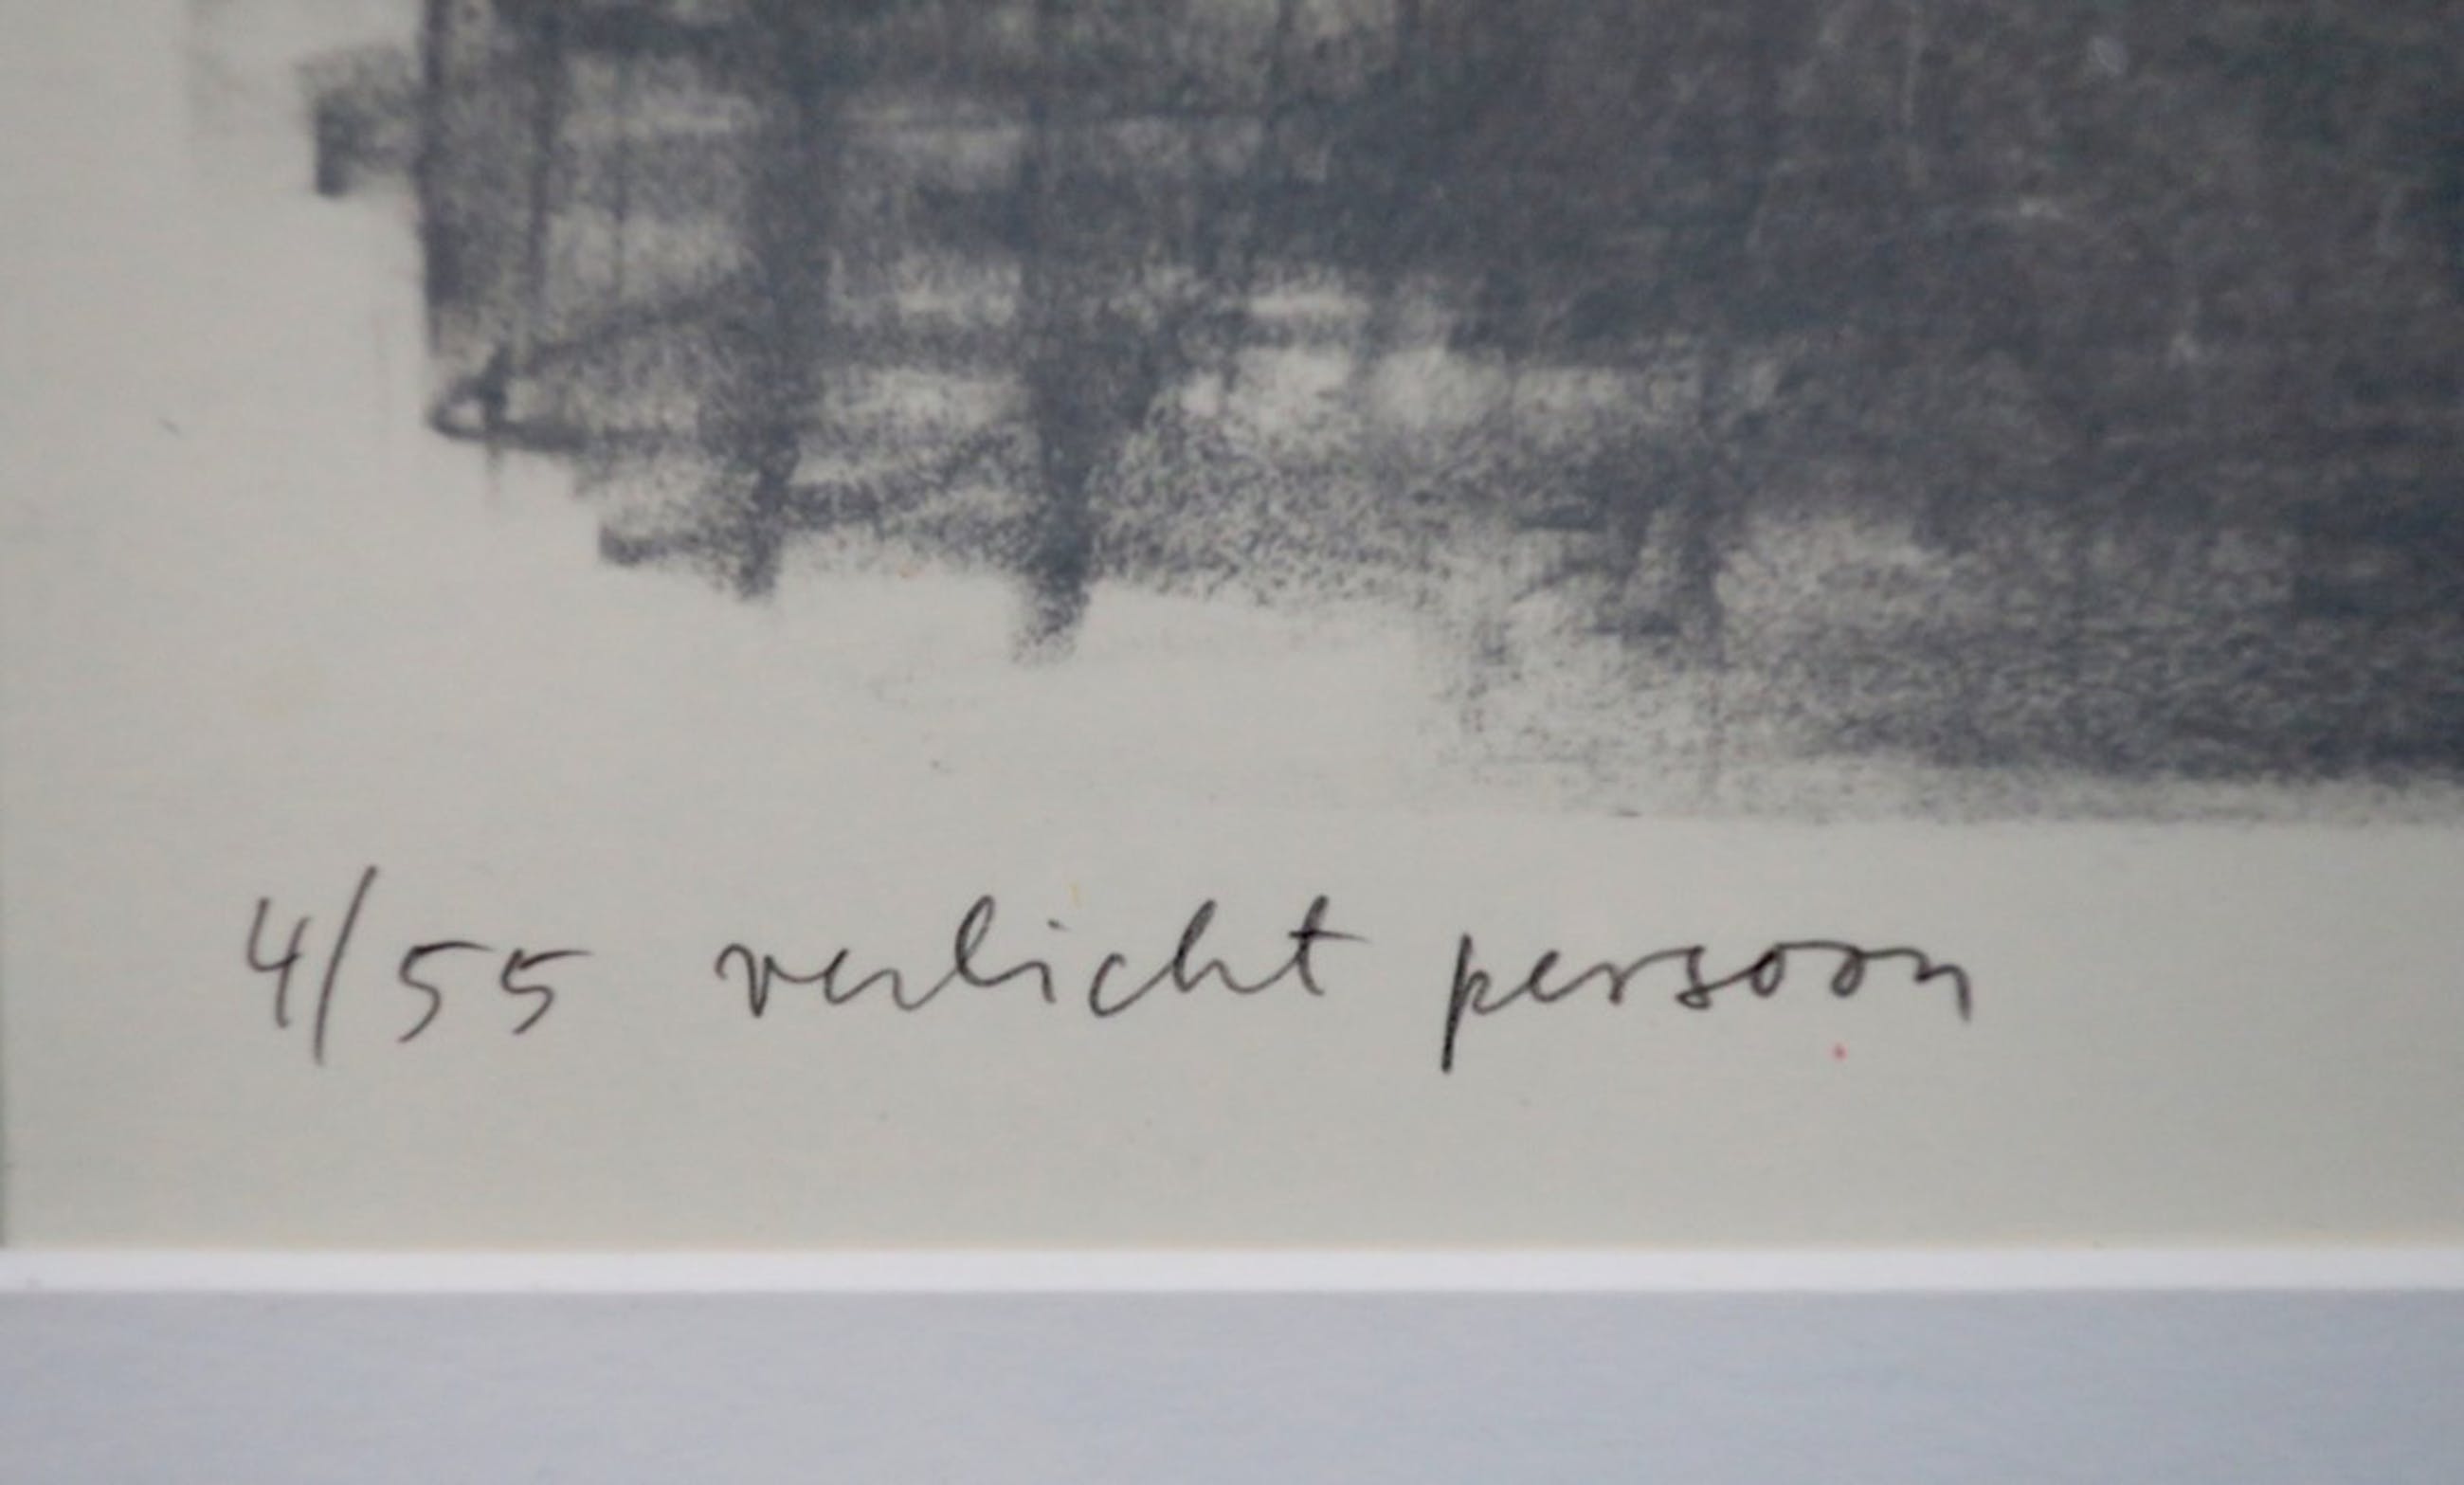 4/55 verlicht persoon